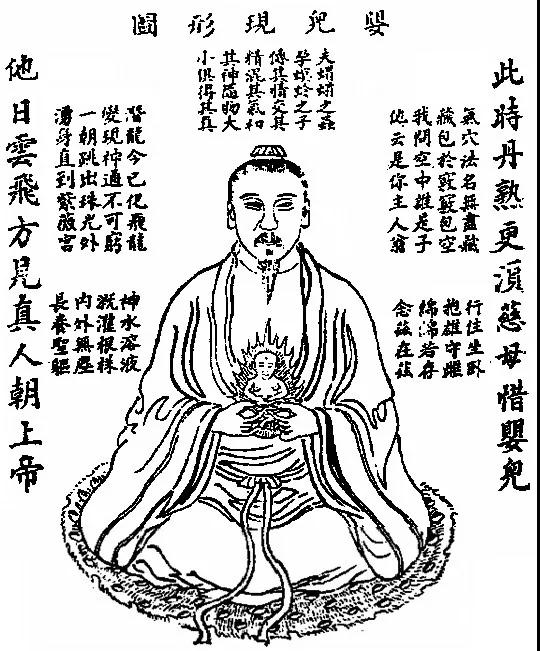 嬰兒現形圖
此時丹熟更須慈母惜嬰兒
氣穴法名無盡藏
藏包於竅竅包空
我問空中誰是子
他云是你主人翁
行住坐臥
抱雄守雌
綿綿若存
念茲在茲
夫之蟲
孕螟蛉之子
傳其情交其
精混其氣和
其神隨物大
小俱得其真
潛龍今已化飛龍
變現神通不可窮
一朝跳出珠光外
湧身直到紫薇宮
神水溶液
溉灌根株
內外無塵
長養聖軀
他日雲飛方見真人朝上帝